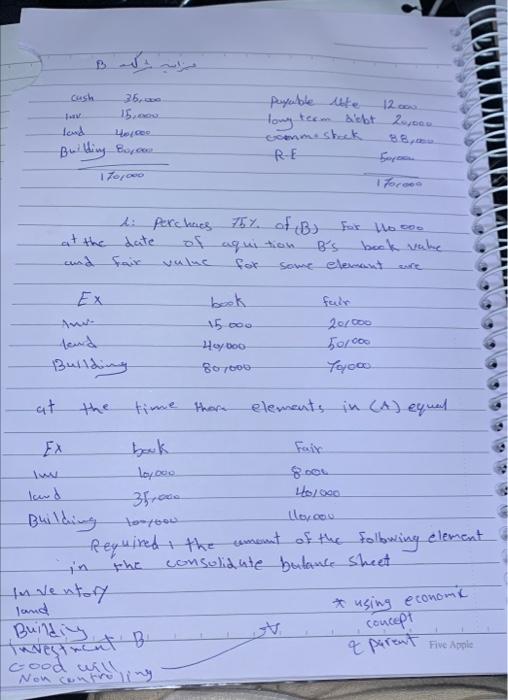 ميزانية شركة B
cash 35,000 payable Note 12000
Inv 15,000 long term debt 20,000
land 40,000 common stock 88,000
Building 80,000 R.E 50,000
170,000 170,000
1: Perchaes 75% of (B) For 110 000
at the date of aquition B's book value
and fair value for some elemant are
Ex book fair
Inv. 15 000 20,000
land 40,000 50,000
Building 80,000 70,000
at the time thare elements in (A) equal
EX book Fair
Inv 10,000 8000
land 35,000 40,000
Building 100,000 110,000
Required : the amount of the following element
in the consolidate balance sheet
Inventory
land
Building
Investment B
Good will
Non controlling
* using economic
concept
& parent
Five Apple